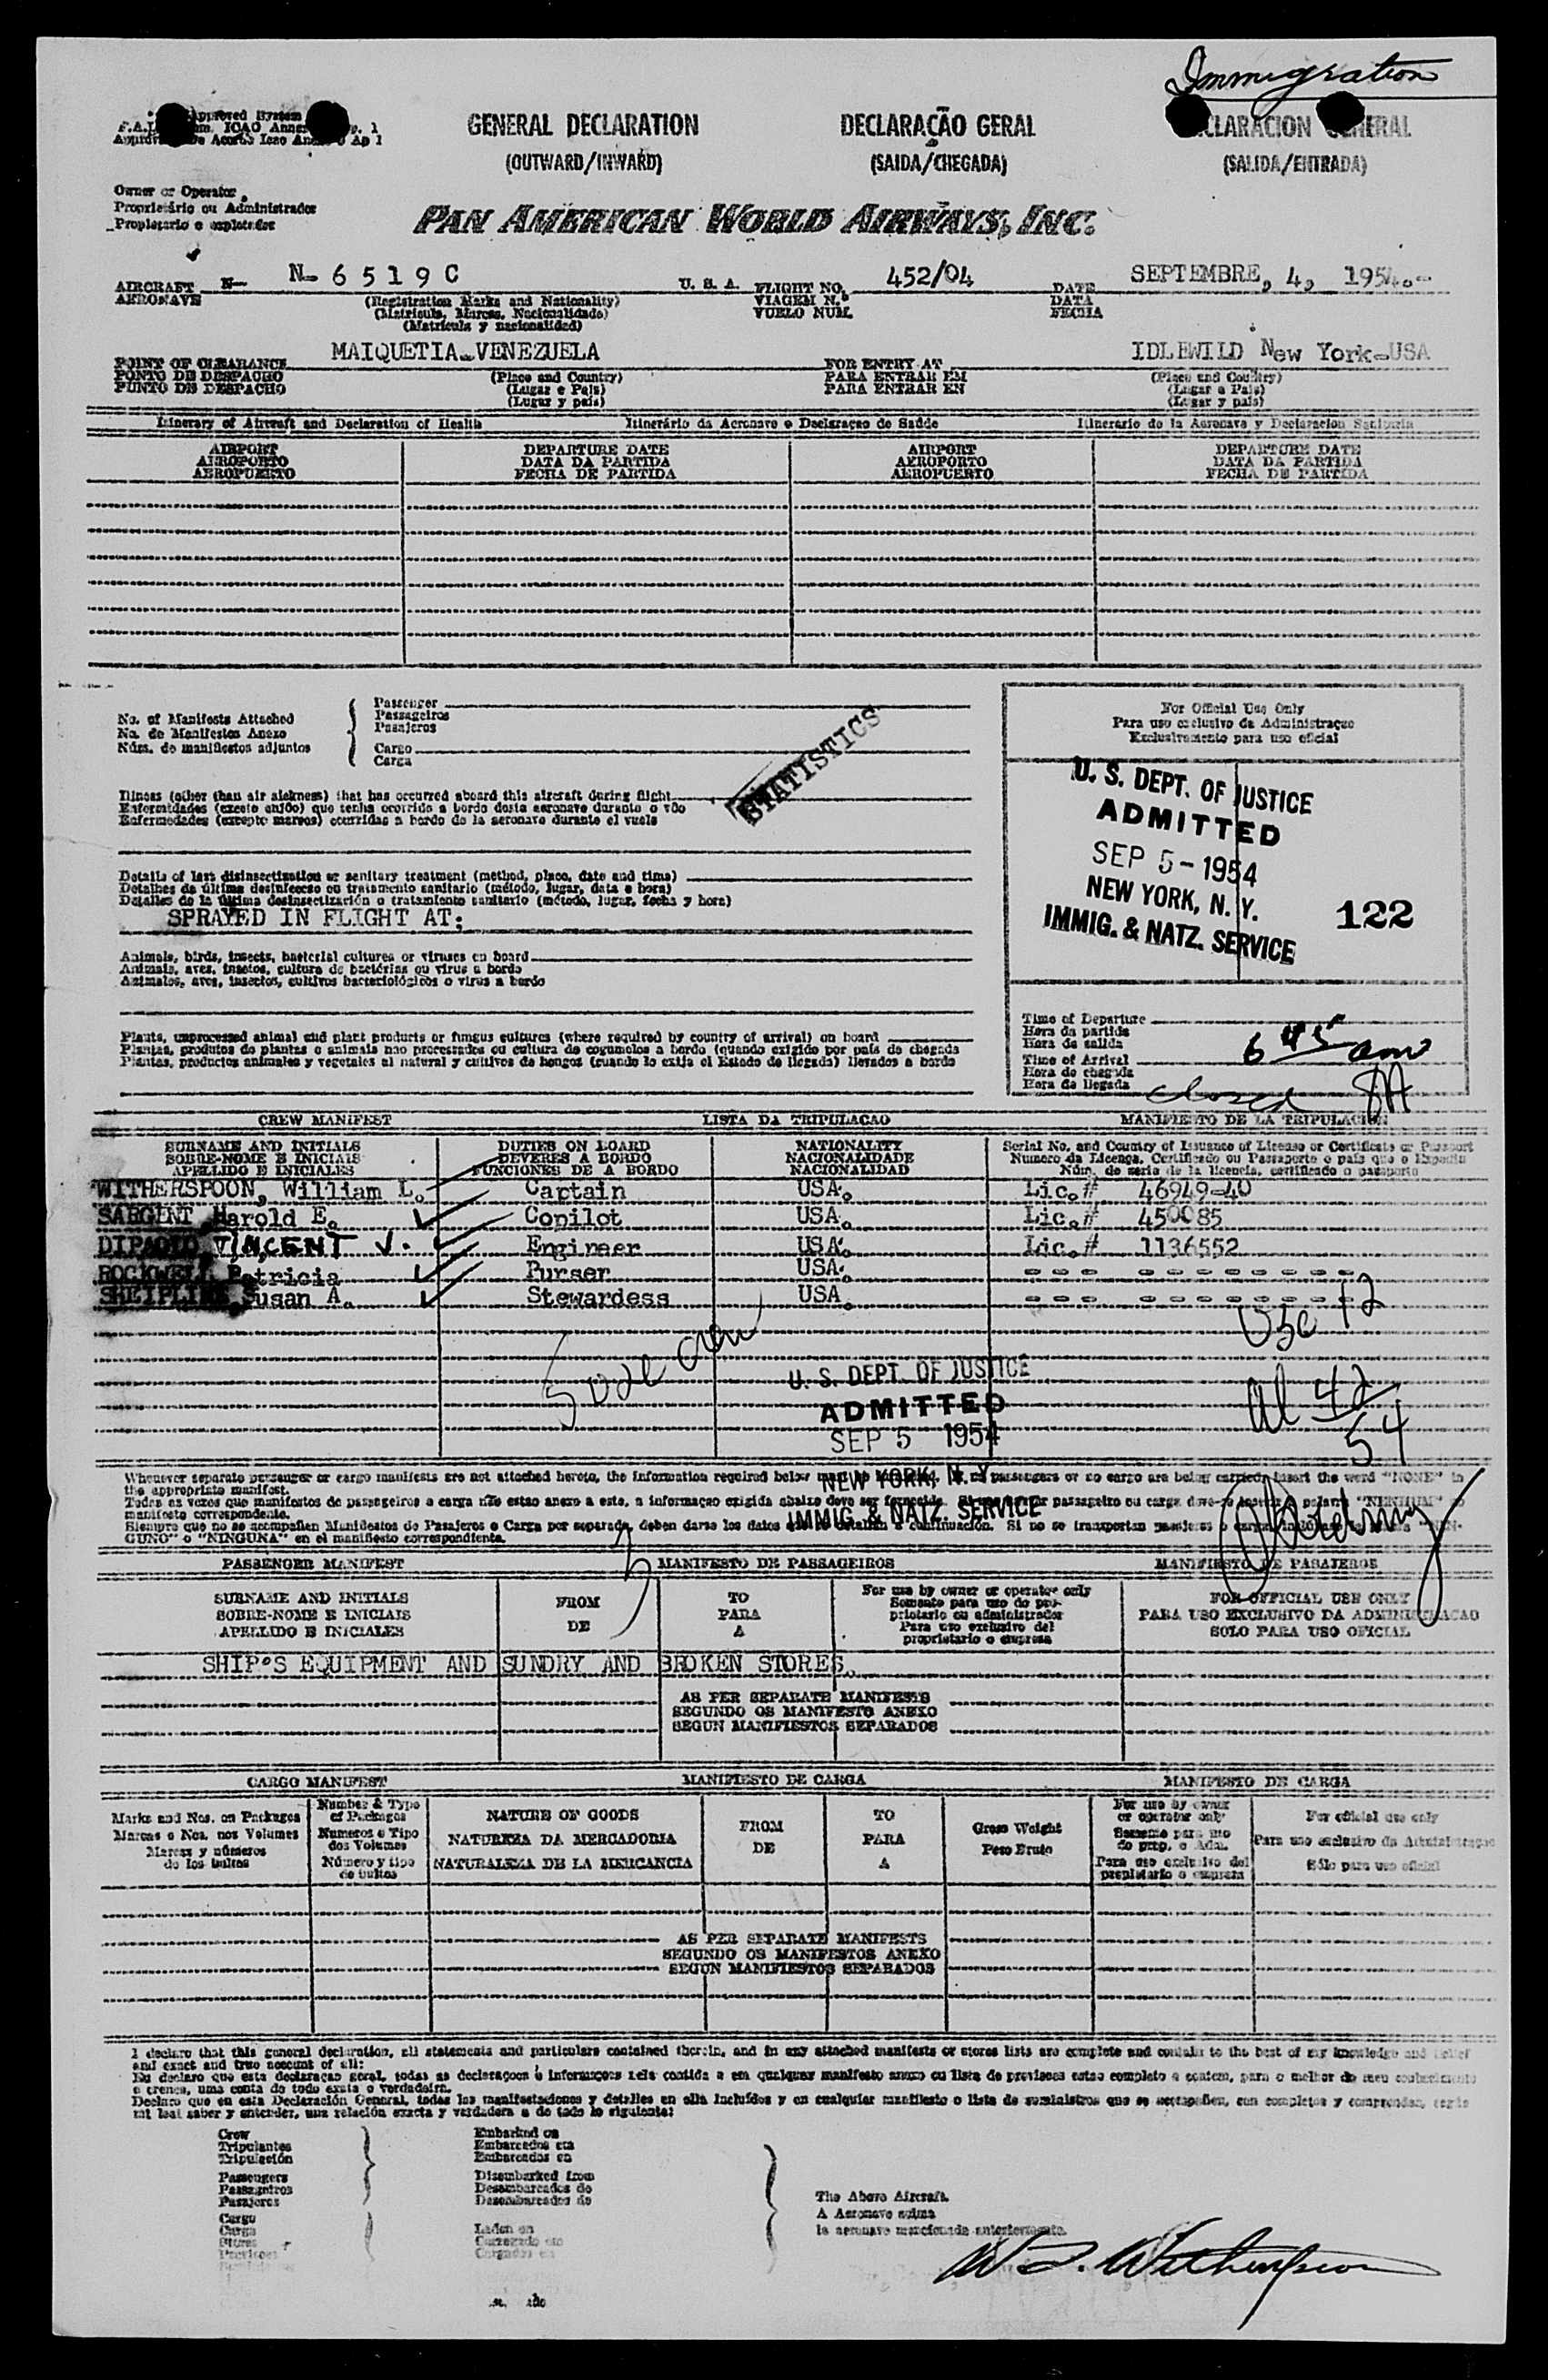 Immigration
GENERAL DECLARATION
(OUTWARD/INWARD)
DECLARAÇÃO GERAL
(SAIDA/CHEGADA)
(SALIDA/ENTRADA)
Owner or Operator
Proprietário ou Administrador
Propietario o explotador
PAN AMERICAN WORLD AIRWAYS, INC.
AIRCRAFT N- N- 6 5 1 9 C U. S. A. FLIGHT NO. 452/04 DATE SEPTEMBRE, 4, 1954.-
AERONAVE (Registration Marks and Nationality) VIAGEM N.º DATA
(Matricula, Marcas, Nacionalidade) VUELO NUM. FECHA
(Matricula y nacionalidad)
POINT OF CLEARANCE MAIQUETIA-VENEZUELA FOR ENTRY AT IDLEWILD New York-USA
PONTO DE DESPACHO (Place and Country) PARA ENTRAR EM (Place and Country)
PUNTO DE DESPACHO (Lugar e Pais) PARA ENTRAR EN (Lugar e Pais)
(Lugar y pais) (Lugar y pais)
Itinerary of Aircraft and Declaration of Health Itinerário da Aeronave e Declaraçao de Saúde Itinerario de la Aeronave y Declaracion Sanitaria
AIRPORT DEPARTURE DATE AIRPORT DEPARTURE DATE
AEROPORTO DATA DA PARTIDA AEROPORTO DATA DA PARTIDA
AEROPUERTO FECHA DE PARTIDA AEROPUERTO FECHA DE PARTIDA
No. of Manifests Attached
No. de Manifestos Anexo
Núm. de manifiestos adjuntos
Passenger
Passageiros
Pasajeros
Cargo
Carga
STATISTICS
For Official Use Only
Para uso exclusivo da Administraçao
Exclusivamente para uso oficial
U. S. DEPT. OF JUSTICE
ADMITTED
SEP 5 - 1954
NEW YORK, N. Y.
IMMIG. & NATZ. SERVICE
122
Illness (other than air sickness) that has occurred aboard this aircraft during flight
Enfermidades (exceto enjôo) que tenha ocorrido a bordo desta aeronave durante o vôo
Enfermedades (excepto mareos) ocurridas a bordo de la aeronave durante el vuelo
Details of last disinsectization or sanitary treatment (method, place, date and time)
Detalhes da última desinfeccao ou tratamento sanitario (método, lugar, data e hora)
Detalles de la última desinsectización o tratamiento sanitario (método, lugar, fecha y hora)
SPRAYED IN FLIGHT AT:
Animals, birds, insects, bacterial cultures or viruses on board
Animais, aves, insetos, cultura de bactérias ou virus a bordo
Animales, aves, insectos, cultivos bacteriológicos o virus a bordo
Plants, unprocessed animal and plant products or fungus cultures (where required by country of arrival) on board
Plantas, produtos de plantas e animais nao processados ou cultura de cogumelos a bordo (quando exigido por pais de chegada
Plantas, productos animales y vegetales al natural y cultivos de hongos (cuando lo exija el Estado de llegada) llevados a bordo
Time of Departure
Hora da partida
Hora de salida
Time of Arrival 6 45 am
Hora de chegada
Hora de llegada closed
CREW MANIFEST LISTA DA TRIPULACAO MANIFIESTO DE LA TRIPULACION
SURNAME AND INITIALS DUTIES ON BOARD NATIONALITY Serial No. and Country of Issuance of License or Certificate or Passport
SOBRE-NOME E INICIAIS DEVERES A BORDO NACIONALIDADE Numero da Licença, Certificado ou Passaporte e pais que o Expediu
APELLIDO E INICIALES FUNCIONES DE A BORDO NACIONALIDAD Núm. de serie de la licencia, certificado o pasaporte
WITHERSPOON, William L. Captain USA. Lic.# 46949-40
SARGENT Harold E. Copilot USA. Lic.# 450085
DIPAOLO, VINCENT V. Engineer USA. Lic.# 1136552
ROCKWELL Patricia Purser USA.
Susan A. Stewardess USA.
Use 12
5 crew
al 42
54
U. S. DEPT. OF JUSTICE
ADMITTED
SEP 5 1954
NEW YORK, N. Y.
IMMIG. & NATZ. SERVICE
Whenever separate passenger or cargo manifests are not attached hereto, the information required below must be passengers or no cargo are being carried, insert the word "NONE" in
the appropriate manifest.
Todas as vezes que manifestos de passageiros e carga não estao anexo a este, a informaçao exigida abaixo deve ser
manifesto correspondente.
Siempre que no se acompañen Manifiestos de Pasajeros o Carga por separado, deben darse los datos que se detallan a continuación. Si no se transportan
GUNO" o "NINGUNA" en el manifiesto correspondiente.
PASSENGER MANIFEST MANIFESTO DE PASSAGEIROS MANIFIESTO DE PASAJEROS
SURNAME AND INITIALS FROM TO For use by owner or operator only FOR OFFICIAL USE ONLY
SOBRE-NOME E INICIAIS DE PARA Somente para uso do proprietario ou administrador PARA USO EXCLUSIVO DA ADMINISTRACAO
APELLIDO E INICIALES A Para uso exclusivo del proprietario o empresa SOLO PARA USO OFICIAL
SHIP'S EQUIPMENT AND SUNDRY AND BROKEN STORES.
AS PER SEPARATE MANIFESTS
SEGUNDO OS MANIFESTO ANEXO
SEGUN MANIFIESTOS SEPARADOS
CARGO MANIFEST MANIFIESTO DE CARGA MANIFESTO DE CARGA
Marks and Nos. on Packages Number & Type of Packages NATURE OF GOODS FROM TO Gross Weight For use by owner or operator only For official use only
Marcas e Nos. nos Volumes Numeros e Tipo dos Volumes NATUREZA DA MERCADORIA DE PARA Peso Bruto Somente para uso do prop. o Adm. Para uso exclusivo da Administraçao
Marcas y números de los bultos Número y tipo de bultos NATURALEZA DE LA MERCANCIA A Para uso exclusivo del propietario o empresa Sólo para uso oficial
AS PER SEPARATE MANIFESTS
SEGUNDO OS MANIFESTOS ANEXO
SEGUN MANIFIESTOS SEPARADOS
I declare that this general declaration, all statements and particulars contained therein, and in any attached manifests or stores lists are complete and contain to the best of my knowledge and belief
and exact and true account of all:
Eu declaro que esta declaraçao geral, todas as declaraçoes e informaçoes nela contida e em qualquer manifesto anexo ou lista de provisoes estao completo e contem, para o melhor do meu conhecimento
e crenca, uma conta de todo exata e verdadeira.
Declaro que en esta Declaración General, todas las manifestaciones y detalles en ella incluídos y en cualquier manifiesto o lista de suministros que se acompañen, son completos y comprenden, segun
mi leal saber y entender, una relación exacta y verdadera a de todo lo siguiente:
Crew
Tripulantes
Tripulación
Passengers
Passageiros
Pasajeros
Cargo
Carga
Stores
Embarked on
Embarcados em
Embarcados en
Disembarked from
Desembarcados de
Desembarcados de
Laden on
The Above Aircraft.
A Aeronave acima
la aeronave mencionada anteriormente.
W. L. Witherspoon